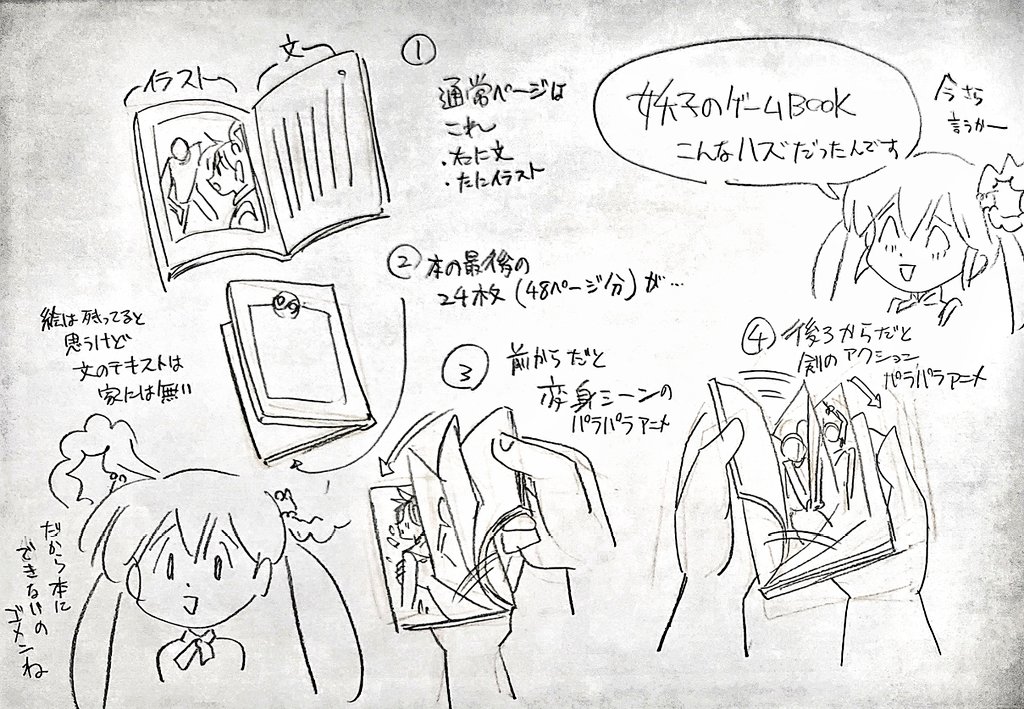 イラスト
文
①
通常ページは
これ
・右に文
・左にイラスト
妖子のゲームBOOK
こんなハズだったんです
今さら
言うかー
②本の最後の
24枚(48ページ分)が…
絵は残ってると
思うけど
文のテキストは
家には無い
③
前からだと
変身シーンの
パラパラアニメ
④後ろからだと
剣のアクション
パラパラアニメ
だから本に
できないの
ゴメンね